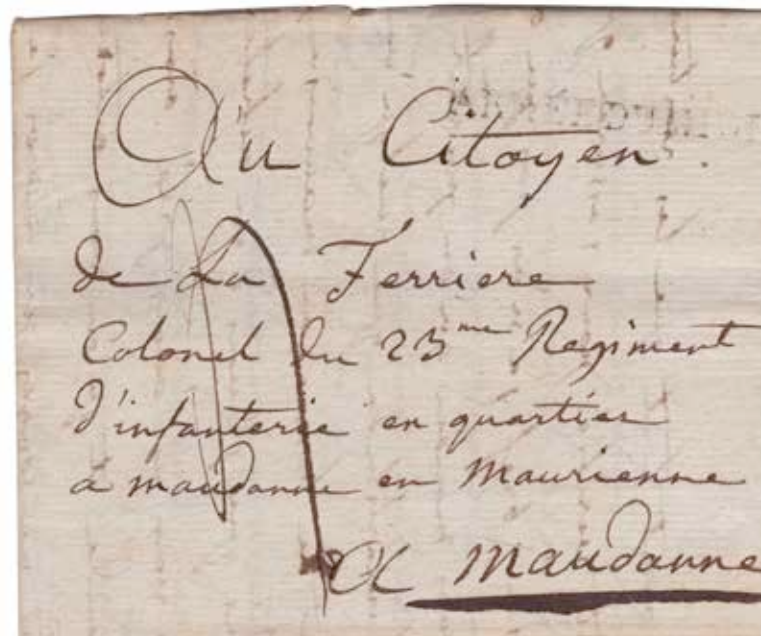 Au Citoyen
de La Ferriere
Colonel du 23me Regiment
d'infanterie en quartier
a maudanne en Maurienne
A maudanne